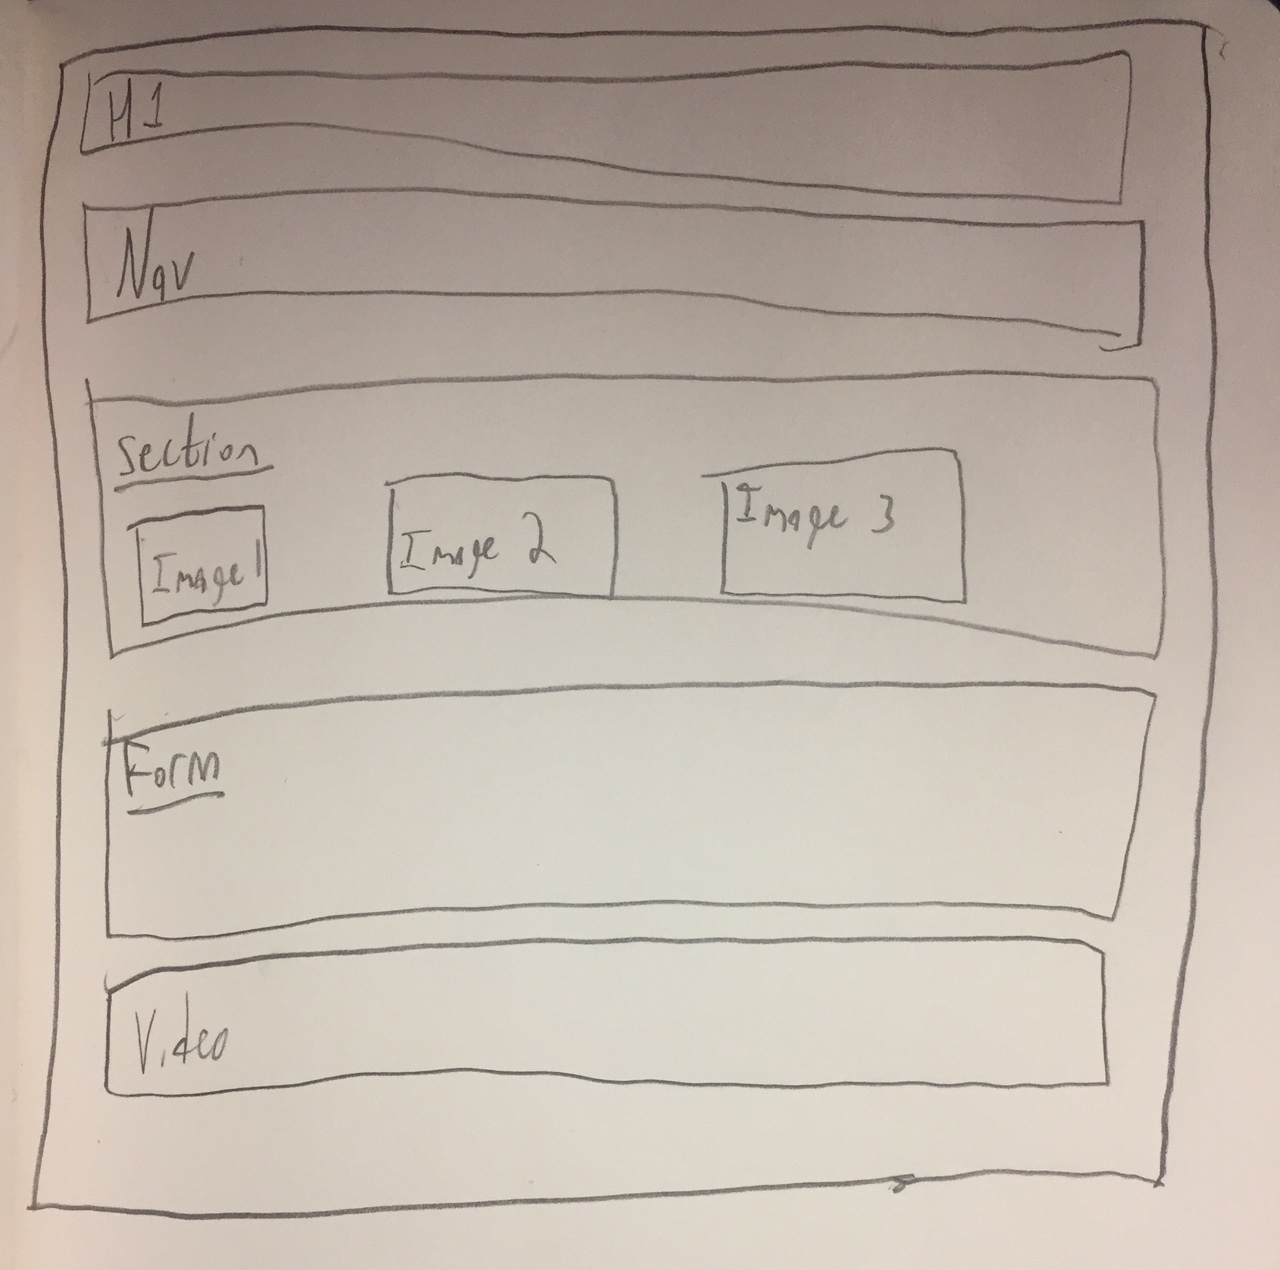 H1
Nav
Section
Image 1
Image 2
Image 3
Form
Video